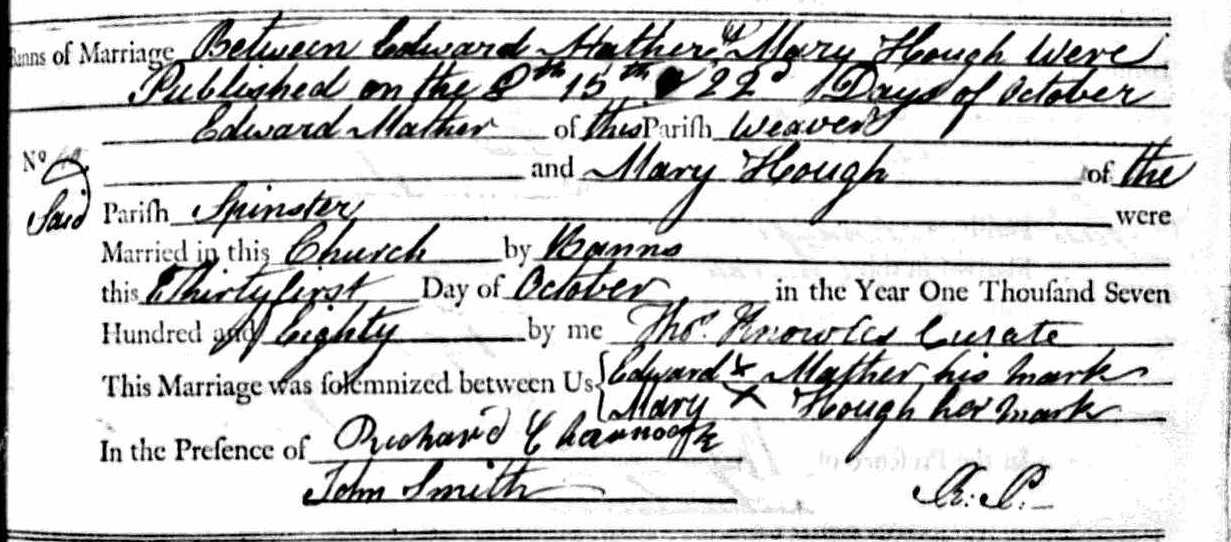 Banns of Marriage Between Edward Mather & Mary Hough Were
Published on the 8th 15th & 22d Days of October
Edward Mather of this Parish Weaver
No
and Mary Hough of the
Said Parish Spinster were
Married in this Church by Banns
this Thirty first Day of October in the Year One Thousand Seven
Hundred and Eighty by me Thos. Knowles Curate
This Marriage was solemnized between Us Edward X Mather his mark
Mary X Hough her mark
In the Presence of Richard Charnock
John Smith